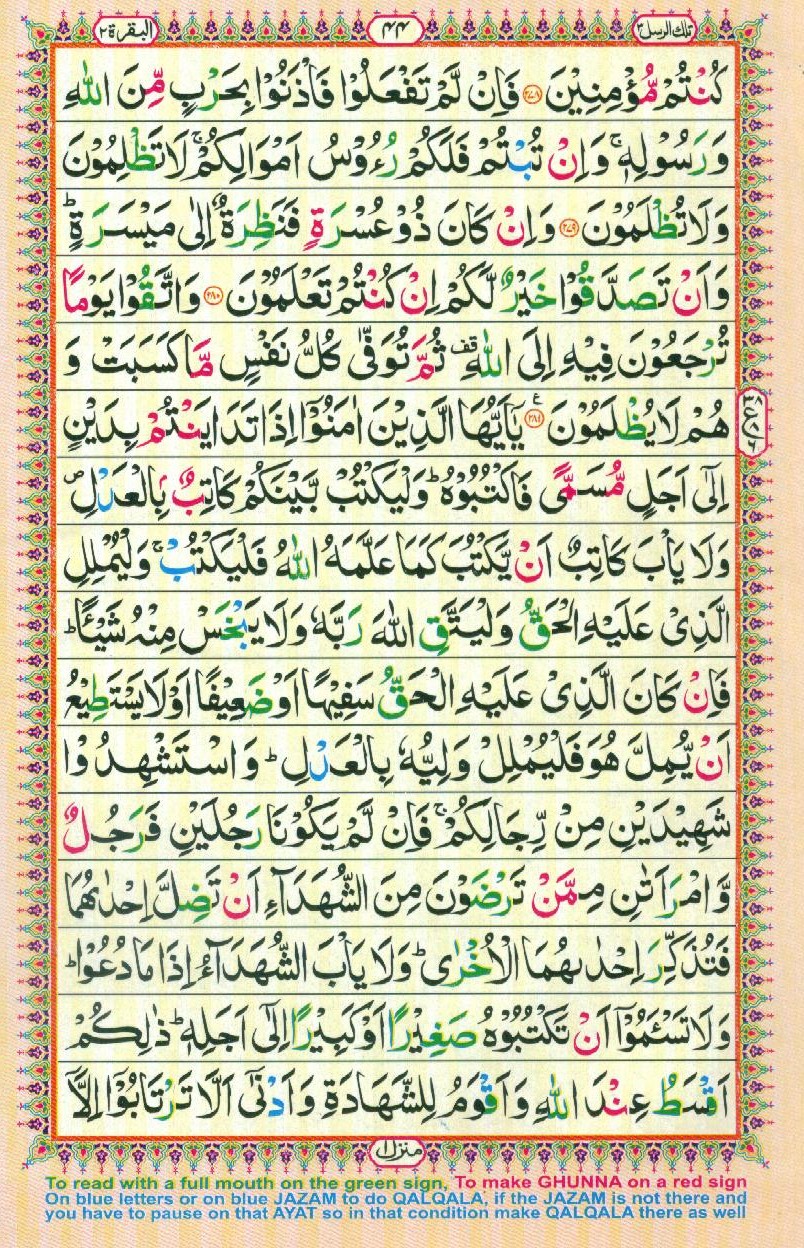 تلك الرسل ٣
٤٤
البقرة ٢
كُنْتُمْ مُّؤْمِنِيْنَ ۝٢٧٨ فَاِنْ لَّمْ تَفْعَلُوْا فَاْذَنُوْا بِحَرْبٍ مِّنَ اللّٰهِ
وَرَسُوْلِهٖ ۚ وَاِنْ تُبْتُمْ فَلَكُمْ رُءُوْسُ اَمْوَالِكُمْ ۚ لَا تَظْلِمُوْنَ
وَلَا تُظْلَمُوْنَ ۝٢٧٩ وَاِنْ كَانَ ذُوْ عُسْرَةٍ فَنَظِرَةٌ اِلٰى مَيْسَرَةٍ ؕ
وَاَنْ تَصَدَّقُوْا خَيْرٌ لَّكُمْ اِنْ كُنْتُمْ تَعْلَمُوْنَ ۝٢٨٠ وَاتَّقُوْا يَوْمًا
تُرْجَعُوْنَ فِيْهِ اِلَى اللّٰهِ قف ثُمَّ تُوَفّٰى كُلُّ نَفْسٍ مَّا كَسَبَتْ وَ
هُمْ لَا يُظْلَمُوْنَ ۝٢٨١ ع يٰۤاَيُّهَا الَّذِيْنَ اٰمَنُوْۤا اِذَا تَدَايَنْتُمْ بِدَيْنٍ
اِلٰۤى اَجَلٍ مُّسَمًّى فَاكْتُبُوْهُ ؕ وَلْيَكْتُبْ بَّيْنَكُمْ كَاتِبٌۢ بِالْعَدْلِ ص
وَلَا يَاْبَ كَاتِبٌ اَنْ يَّكْتُبَ كَمَا عَلَّمَهُ اللّٰهُ فَلْيَكْتُبْ ۚ وَلْيُمْلِلِ
الَّذِيْ عَلَيْهِ الْحَقُّ وَلْيَتَّقِ اللّٰهَ رَبَّهٗ وَلَا يَبْخَسْ مِنْهُ شَيْـًٔا ؕ
فَاِنْ كَانَ الَّذِيْ عَلَيْهِ الْحَقُّ سَفِيْهًا اَوْ ضَعِيْفًا اَوْ لَا يَسْتَطِيْعُ
اَنْ يُّمِلَّ هُوَ فَلْيُمْلِلْ وَلِيُّهٗ بِالْعَدْلِ ؕ وَاسْتَشْهِدُوْا
شَهِيْدَيْنِ مِنْ رِّجَالِكُمْ ۚ فَاِنْ لَّمْ يَكُوْنَا رَجُلَيْنِ فَرَجُلٌ
وَّامْرَاَتٰنِ مِمَّنْ تَرْضَوْنَ مِنَ الشُّهَدَآءِ اَنْ تَضِلَّ اِحْدٰىهُمَا
فَتُذَكِّرَ اِحْدٰىهُمَا الْاُخْرٰى ؕ وَلَا يَاْبَ الشُّهَدَآءُ اِذَا مَا دُعُوْا ؕ
وَلَا تَسْـَٔمُوْۤا اَنْ تَكْتُبُوْهُ صَغِيْرًا اَوْ كَبِيْرًا اِلٰۤى اَجَلِهٖ ؕ ذٰلِكُمْ
اَقْسَطُ عِنْدَ اللّٰهِ وَاَقْوَمُ لِلشَّهَادَةِ وَاَدْنٰۤى اَلَّا تَرْتَابُوْۤا اِلَّاۤ
منزل ١
To read with a full mouth on the green sign, To make GHUNNA on a red sign
On blue letters or on blue JAZAM to do QALQALA, if the JAZAM is not there and
you have to pause on that AYAT so in that condition make QALQALA there as well